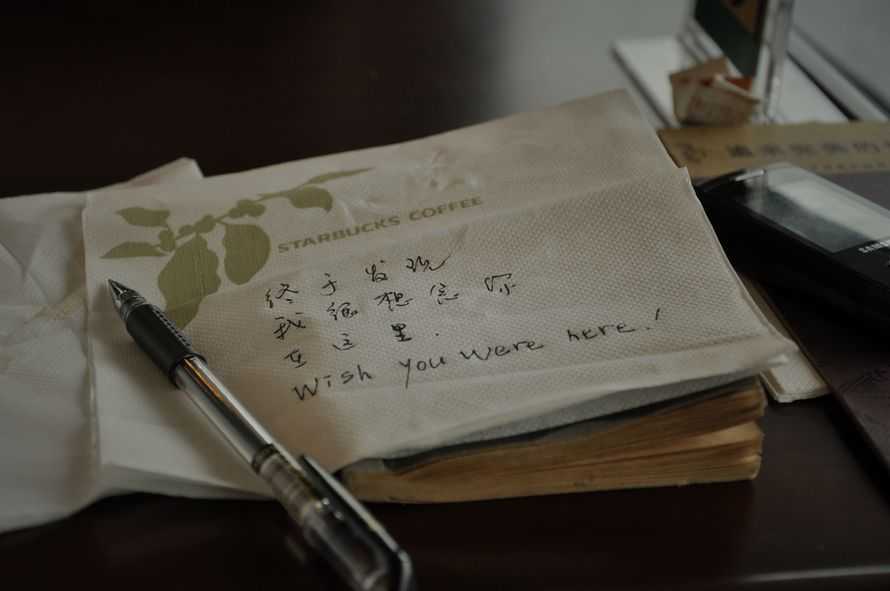 STARBUCKS COFFEE
终于发现
我很想念你
在这里.
Wish you were here!